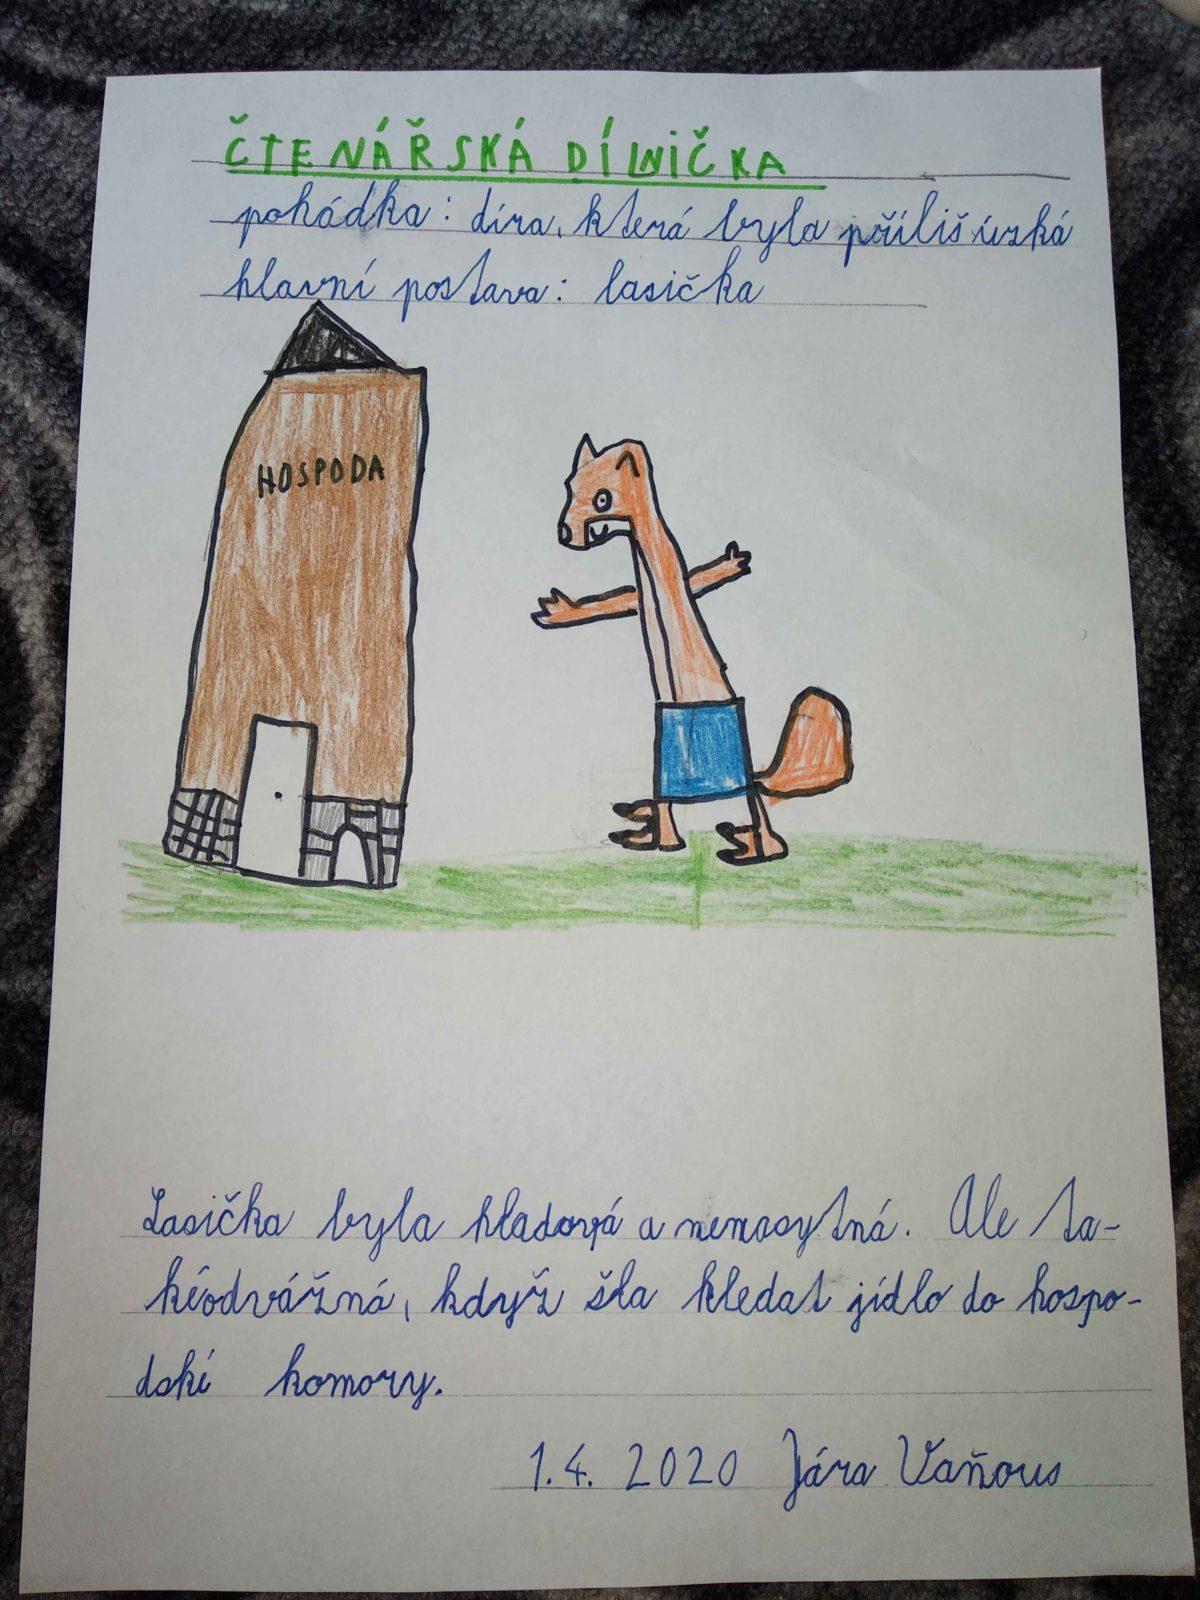 ČTENÁŘSKÁ DÍLNIČKA
pohádka: díra, která byla příliš úzká
hlavní postava: lasička
HOSPODA
Lasička byla hladová a nenasytná. Ale ta-
kéodvážná, když šla hledat jídlo do hospo-
dské komory.
1.4. 2020 Jára Vaňous